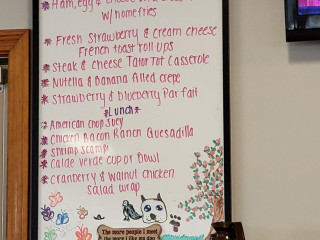 Ham, egg & cheese
w/ homefries
Fresh Strawberry & cream cheese
French toast roll ups
Steak & cheese Tator tot casserole
Nutella & Banana filled crepe
Strawberry & Blueberry Parfait
Lunch
American chop suey
Chicken Bacon Ranch Quesadilla
Shrimp scampi
Calde verde cup or bowl
Cranberry & walnut chicken
salad wrap
The more people I meet
the more I like my dog